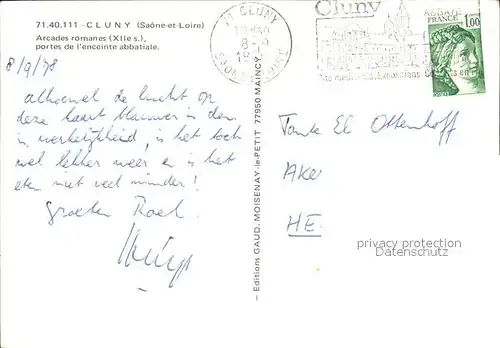 71.40.111 - CLUNY (Saône-et-Loire)
Arcades romanes (XIIe s.),
portes de l'enceinte abbatiale.
8/9/78
alhoewel de lucht op
deze kaart blauwer is dan
in werkelijkheid, is het toch
wel lekker weer en is het
eten niet veel minder!
Groeten Roel
- Editions GAUD. MOISENAY-le-PETIT 77950 MAINCY
71 CLUNY
8-9
SAONE ET LOIRE
Cluny
FRANCE 1,00
Tante El Ottenhoff
AKe
HE.
privacy protection
DATENSCHUTZ